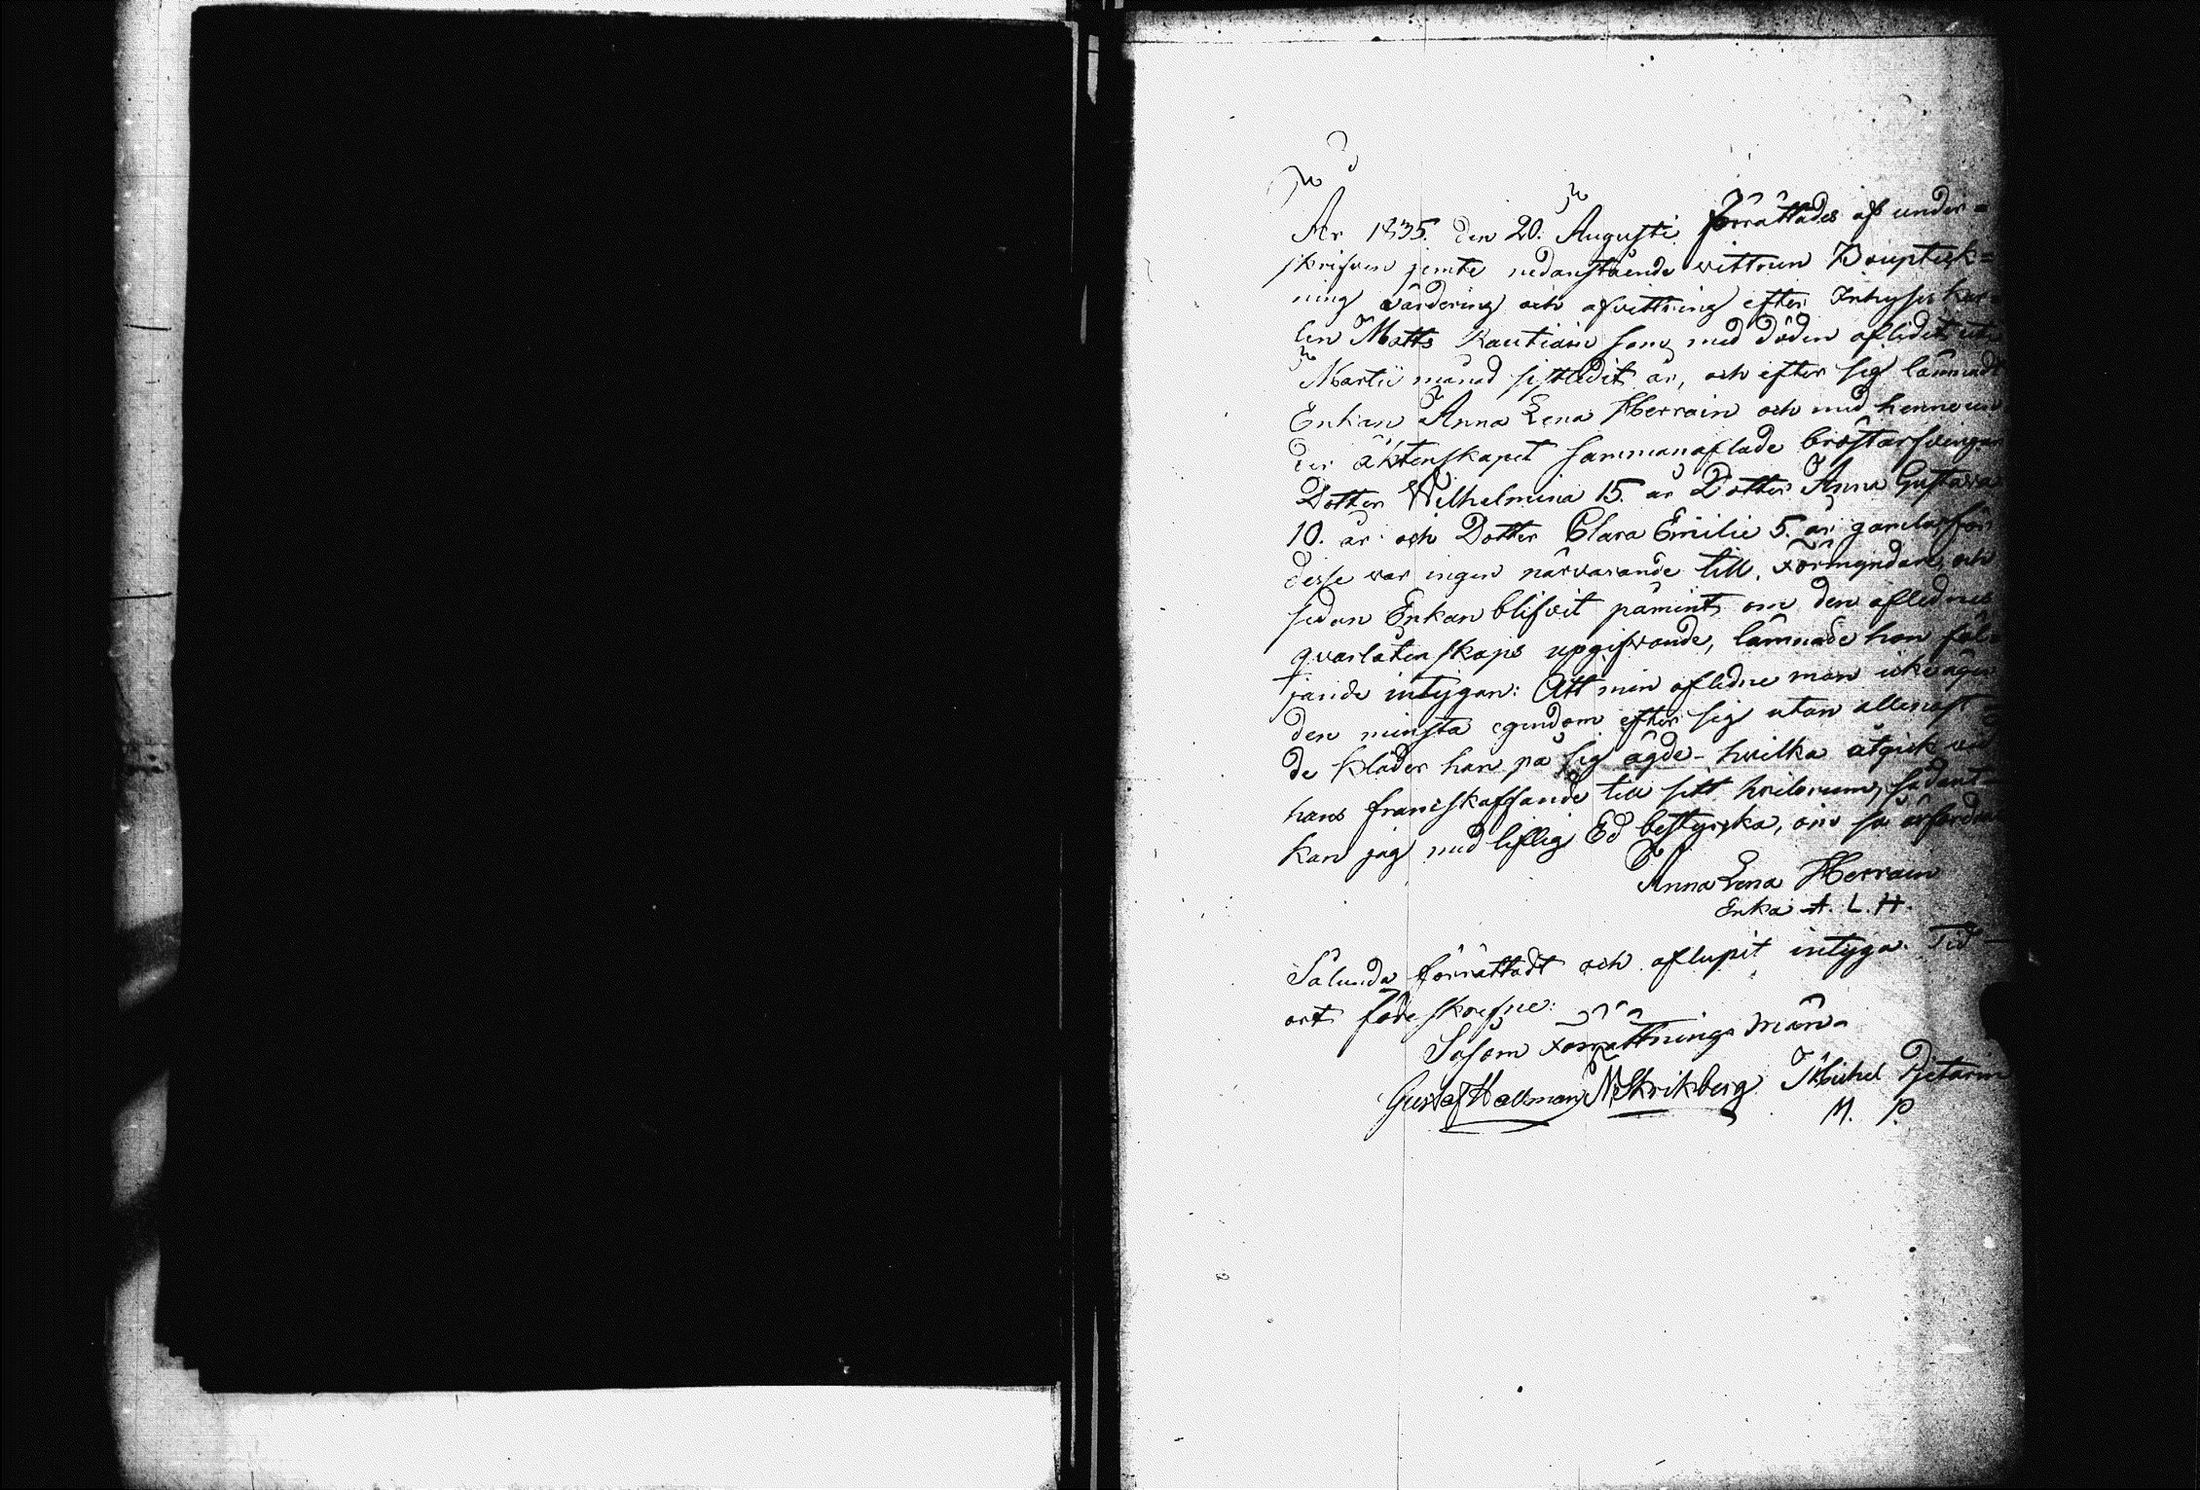 År 1835. den 20. Augusti förrättades af under=
skrifven jemte nedanstående vittnen Bouptek=
ning värdering och afvittring efter Inhyses kar=
len Matts Kautiain som med döden aflidit uti
Martii månad sistledit år, och efter sig lämnadt
Enkan Anna Lena Herrain och med henne un
der äktenskapet sammanaflade bröstarfvingar
Dotter Wilhelmina 15. år Dotter Anna Gustava
10. år och Dotter Clara Emilie 5. år
desse var ingen närvarande till. Förmyndare, och
sedan Enkan blifvit påmint om den aflednes
qvarlåtenskaps upgifvande, lämnade hon föl=
jande intygan: Att min afledne man icke äger
den minsta egendom efter sig utan allenast
de kläder han på sig ägde - hvilka åtgick vid
hans framskaffande till sitt hvilorum, sådant
kan jag med liflig Ed bestyrka, om så erfordras
Anna Lena Herrain
Enka A. L. H.
Sålunda förrättadt och aflupit intyga. Tid
ort föreskrefne:
Såsom Förrättnings män
Gustaf Hallman M Skrikberg Michel Pietarin
M. P.